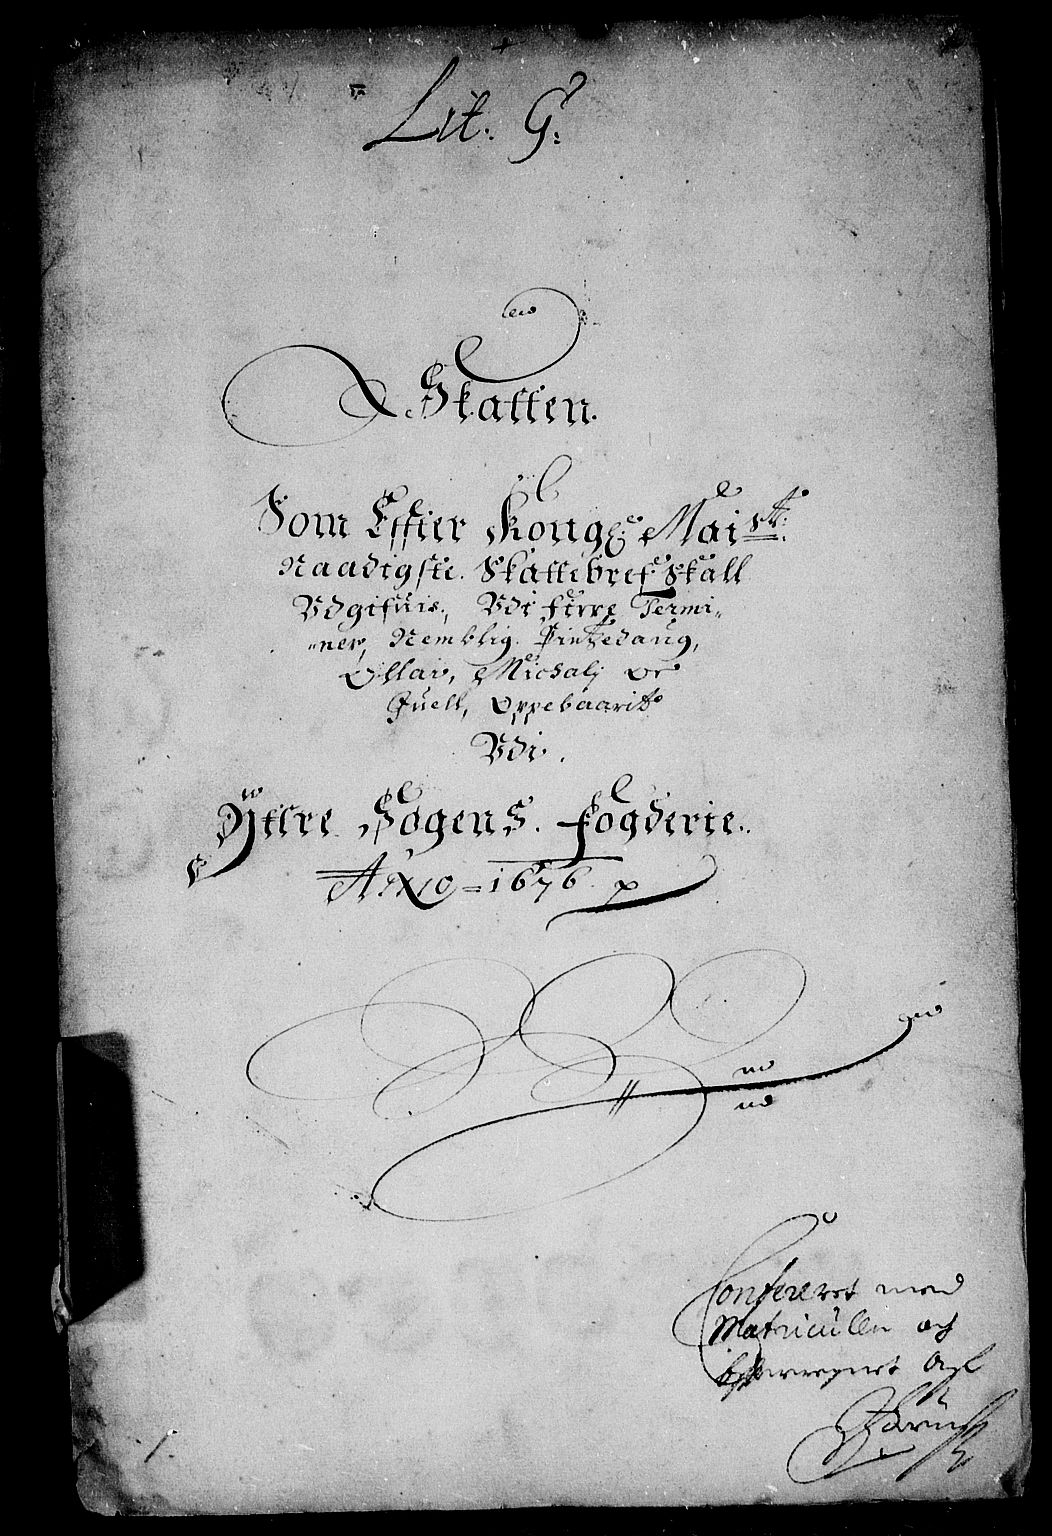 Lit. G:
Skatten.
Som Effter Kongę: Maistt:
Naadigste. Skattebref Skall
Vdgifuis, Vdi fiire Termi„
„ner, Nemblig. Pintzedaug,
Ollai, Michalj oc
Juell, Oppebaaritt
Vdi.
Yttre Sogens. fogderie.
Anno = 1676. p
Confereret med
Matricullen och
efterregnet Af